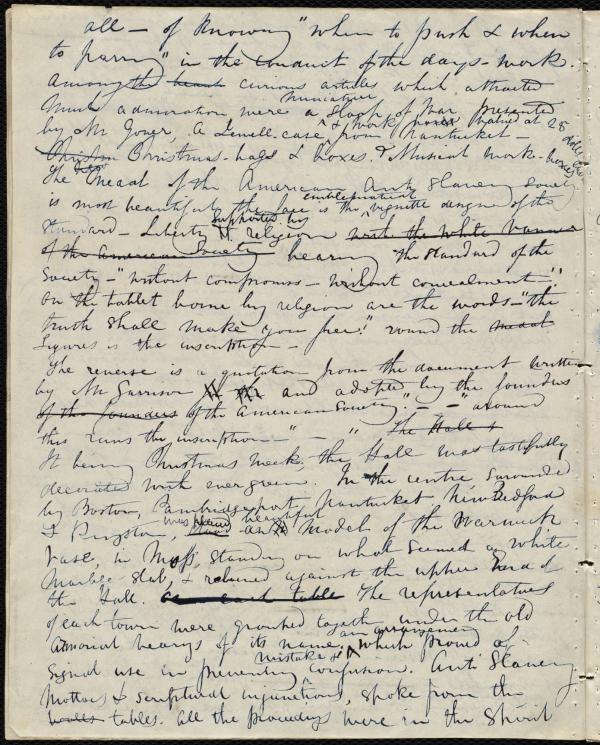 all — of knowing "when to push & when
to parry" in the conduct of the days-work.
Among the curious articles which attracted
much admiration were a miniature Sloop of War presented
by Mr Jones, A Jewell-case, & work from Nantucket — valued at 28 dollars
Christmas-bags & boxes. & Musical work-boxes
The new Medal of the American Anti Slavery Society
is most beautiful the face is the emblematical vignette design of the
Standard — Liberty supported by religion with the white banner
of the American Society bearing the standard of the
Society — "without compromise — without concealment —"
on the tablet borne by religion are the words — "the
truth shall make you free!" round the medal
figures is the inscription —
The reverse is a quotation from the document written
by Mr Garrison and adopted by the founders
of the founders of the American Society. "— — " around
this runs the inscription — " — " The Hall &
It being Christmas week, the Hall was tastefully
decorated with evergreen. In the centre, surrounded
by Boston, Cambridgeport, Nantucket New Bedford
& Kingston, was placed a beautiful model of the Warwick
Vase, in Moss, standing on what seemed a white
Marble slab, & relieved against the upper end of
the Hall. on each table The representatives
of each town were grouped together under the old
armorial bearings of its name, an arrangement which proved of
signal use in preventing mistake & confusion. Anti Slavery
Mottoes & scriptural injunctions, spoke from the
walls tables. All the proceedings were in the Spirit